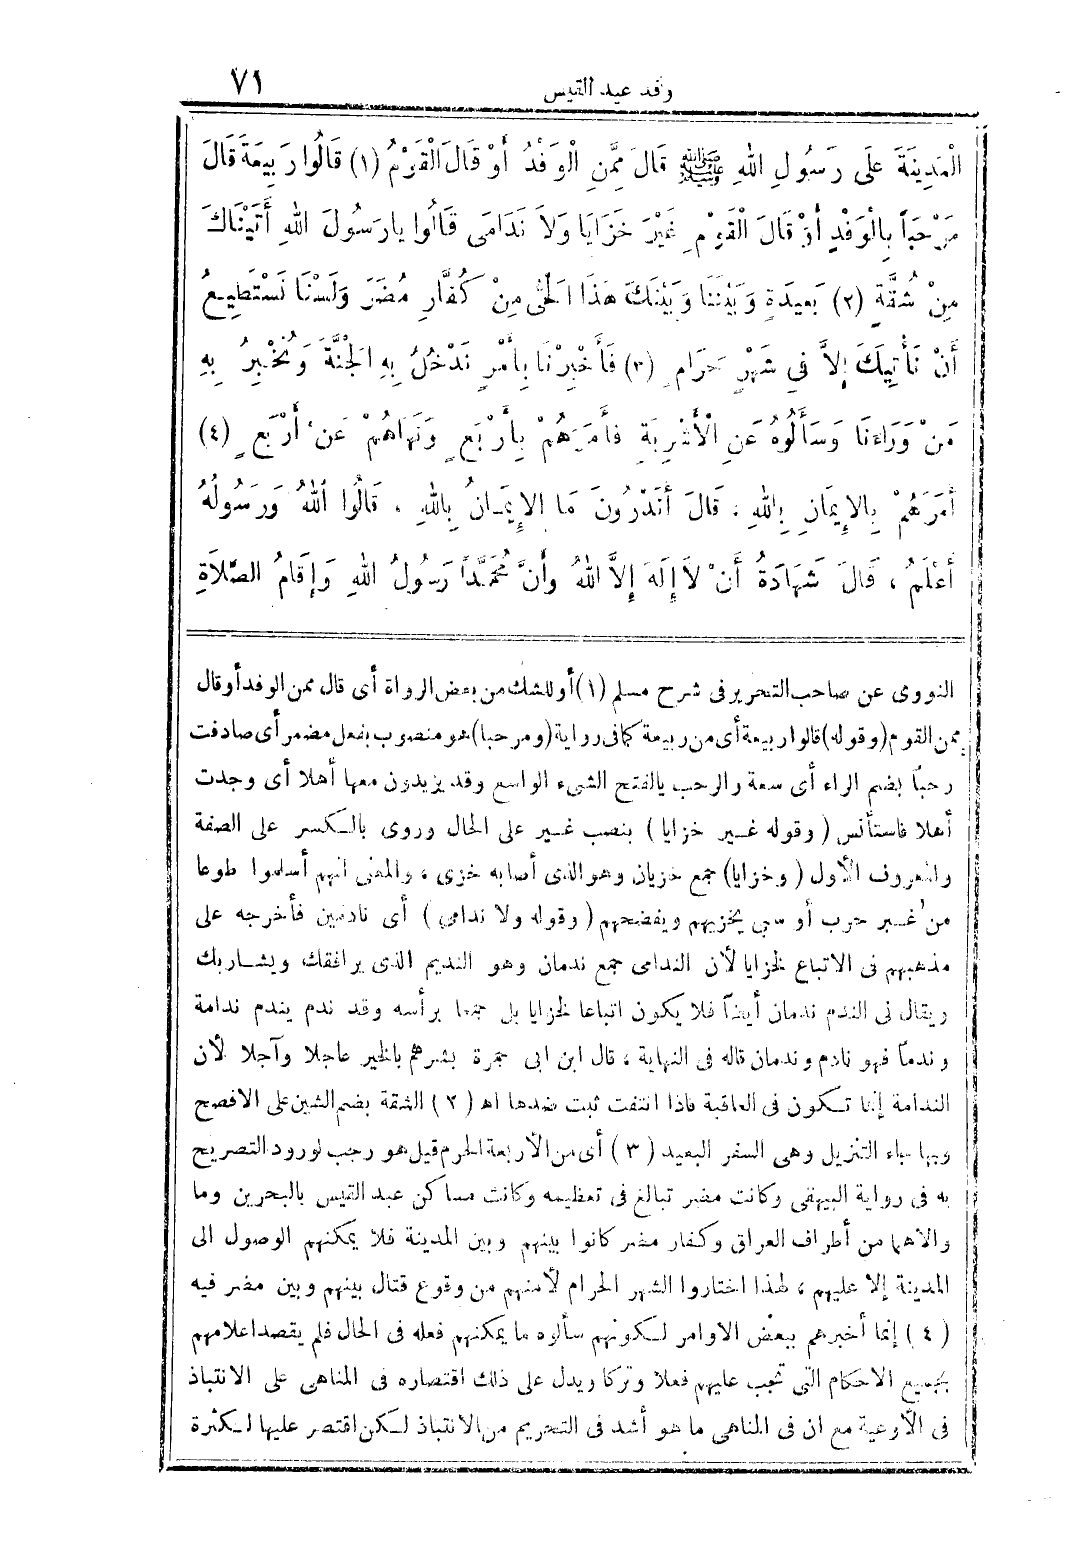 وفد عبد القيس ٧١
الْمَدِينَةَ عَلَى رَسُولِ اللهِ ﷺ قَالَ مِمَّنِ الْوَفْدُ أَوْ قَالَ الْقَوْمُ (١) قَالُوا رَبِيعَةَ قَالَ
مَرْحَبًا بِالْوَفْدِ أَوْ قَالَ الْقَوْمِ غَيْرَ خَزَايَا وَلاَ نَدَامَى قَالُوا يارَسُولَ اللهِ أَتَيْنَاكَ
مِنْ شُقَّةٍ (٢) بَعِيدَةٍ وَبَيْنَنَا وَبَيْنَكَ هَذَا الْحَىُّ مِنْ كُفَّارِ مُضَرَ وَلَسْنَا نَسْتَطِيعُ
أَنْ نَأْتِيَكَ إلاَّ فِي شَهْرٍ حَرَامٍ (٣) فَأَخْبِرْنَا بِأَمْرٍ نَدْخُلُ بِهِ الْجَنَّةَ وَنُخْبِرُ بِهِ
مَنْ وَرَاءَنَا وَسَأَلُوهُ عَنِ الْأَشْرِبَةِ فَأَمَرَهُمْ بِأَرْبَعٍ وَنَهَاهُمْ عَنْ أَرْبَعٍ (٤)
أَمَرَهُمْ بِالإِيمَانِ بِاللهِ ، قَالَ أَتَدْرُونَ مَا الإِيمَانُ بِاللهِ ، قَالُوا اللهُ وَرَسُولُهُ
أَعْلَمُ ، قَالَ شَهَادَةُ أَنْ لاَ إِلَهَ إِلاَّ اللهُ وَأَنَّ مُحَمَّدًا رَسُولُ اللهِ وَإِقَامُ الصَّلَاةِ
النووى عن صاحب التحرير فى شرح مسلم (١) أو للشك من بعض الرواة أى قال ممن الوفد أو قال
ممن القوم (وقوله) قالوا ربيعة أى من ربيعة كما فى رواية (ومرحبا) هو منصوب بفعل مضمر أى صادفت
رحبًا بضم الراء أى سعة والرحب بالفتح الشىء الواسع وقد يزيدون معها أهلا أى وجدت
أهلا فاستأنس ( وقوله غير خزايا ) بنصب غير على الحال وروى بالكسر على الصفة
والمعروف الأول ( وخزايا) جمع خزيان وهو الذى أصابه خزى ، والمعنى انهم أسلموا طوعا
من غير حرب أو سبى يخزيهم ويفضحهم ( وقوله ولا ندامى ) أى نادمين فأخرجه على
مذهبهم فى الاتباع لخزايا لأن الندامى جمع ندمان وهو النديم الذى يرافقك ويشاربك
ويقال فى الندم ندمان أيضاً فلا يكون اتباعا لخزايا بل جمعا برأسه وقد ندم يندم ندامة
وندمًا فهو نادم وندمان قاله فى النهاية ، قال ابن ابى جمرة بشرهم بالخير عاجلا وآجلا لأن
الندامة إنما تكون فى العاقبة فاذا انتفت ثبت ضدها اه ( ٢ ) الشقة بضم الشين على الافصح
وبها جاء التنزيل وهى السفر البعيد ( ٣ ) أى من الأربعة الحرم قيل هو رجب لورود التصريح
به فى رواية البيهقى وكانت مضر تبالغ فى تعظيمه وكانت مساكن عبد القيس بالبحرين وما
والاها من أطراف العراق وكفار مضر كانوا بينهم وبين المدينة فلا يمكنهم الوصول الى
المدينة إلا عليهم ، لهذا اختاروا الشهر الحرام لأمنهم من وقوع قتال بينهم وبين مضر فيه
( ٤ ) إنما أخبرهم ببعض الاوامر لكونهم سألوه ما يمكنهم فعله فى الحال فلم يقصد اعلامهم
بجميع الاحكام التى تجب عليهم فعلا وتركا ويدل على ذلك اقتصاره فى المناهى على الانتباذ
فى الأوعية مع ان فى المناهى ما هو أشد فى التحريم من الانتباذ لكن اقتصر عليها لكثرة